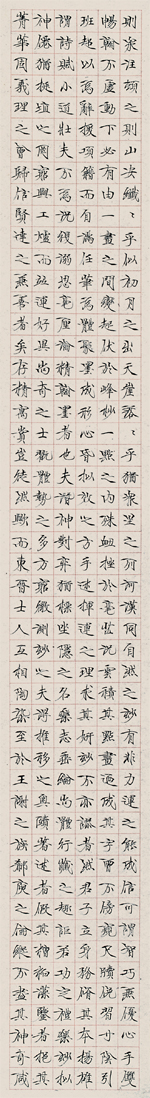 則泉注頓之則山安纖〻乎似初月之出天崖落〻乎猶衆星之列河漢同自然之妙有非力運之能成信可謂智巧兼優心手雙
暢翰不虛動下必有由一畫之間變起伏於鋒杪一點之內殊衄挫於毫芒況云積其點畫乃成其字曾不傍窺尺牘俯習寸陰引
班超以爲辭援項籍而自滿任筆爲體聚墨成形心昏擬效之方手迷揮運之理求其妍妙不亦謬哉然君子立身務脩其本揚雄
謂詩賦小道壯夫不爲況復溺思毫釐淪精翰墨者也夫潛神對弈猶標坐隱之名樂志垂綸尚體行藏之趣詎若功定禮樂妙擬
神僊猶埏埴之罔窮與工爐而並運好異尚奇之士翫體勢之多方窮微測妙之夫得推移之奧賾著述者假其糟粕藻鑒者挹其
菁華固義理之會歸信賢達之兼善者矣存精寓賞豈徒然歟而東晉士人互相陶染至於王謝之族郗庾之倫縱不盡其神奇咸